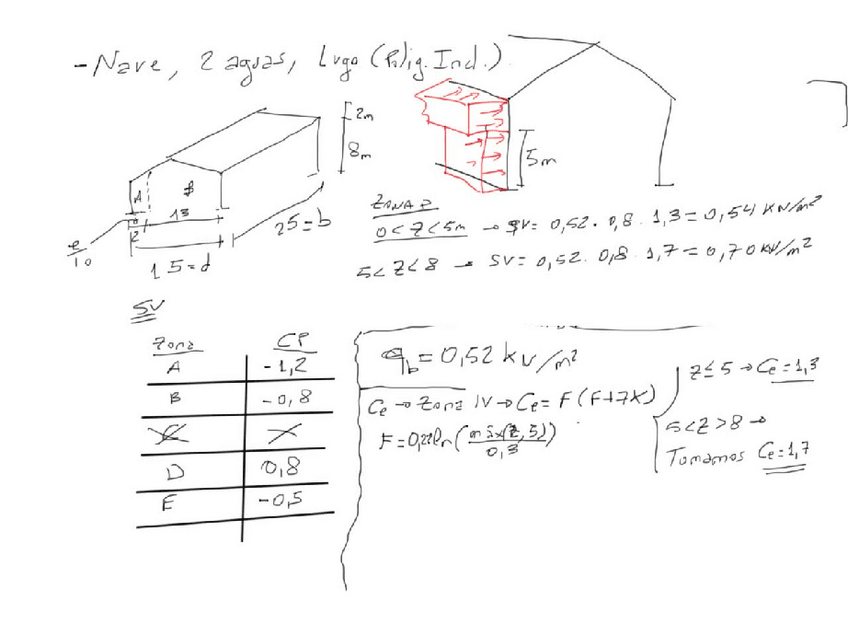 - Nave, 2 aguas, Lugo (Polig. Ind.)
2m
8m
A
B
13
2
e/10
15=d
25=b
5m
ZONA D
0<Z<5m → qv= 0,52 · 0,8 · 1,3 = 0,54 KN/m²
5<Z<8 → SV= 0,52 · 0,8 · 1,7 = 0,70 KN/m²
SV
Zona CP
A -1,2
B -0,8
C X
D 0,8
E -0,5
qb = 0,52 kN/m²
Ce → Zona IV → Ce = F (F+7K)
F = 0,22 ln (máx(Z, 5)/0,3)
Z ≤ 5 → Ce = 1,3
5<Z>8 →
Tomamos Ce = 1,7